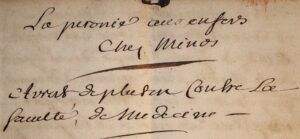 La peronie aux enfers
Chez Minos
et arrest de pluton Contre La
faculté de Medecine